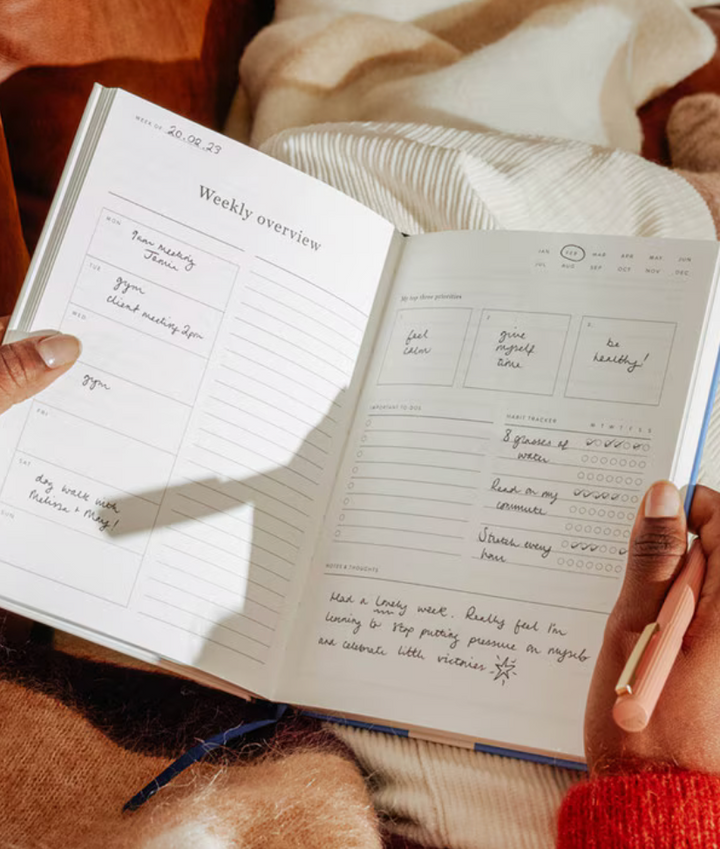 WEEK OF 20.02.23
Weekly overview
MON
9am meeting
Jamie
TUE
gym
client meeting 2pm
WED
gym
FRI
SAT
dog walk with
Melissa + May!
SUN
JAN FEB MAR APR MAY JUN
JUL AUG SEP OCT NOV DEC
My top three priorities
1. 2. 3.
feel
calm
give
myself
time
be
healthy!
IMPORTANT TO DOS
HABIT TRACKER M T W T F S S
8 glasses of
water
Read on my
commute
Stretch every
hour
NOTES & THOUGHTS
Had a lovely week. Really feel I'm
learning to stop putting pressure on myself
and celebrate little victories